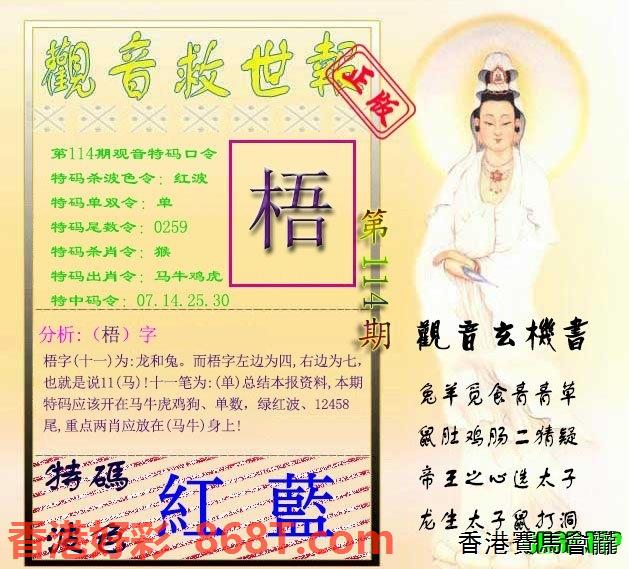 觀音救世報
正版
第114期观音特码口令
特码杀波色令: 红波
特码单双令: 单
特码尾数令: 0259
特码杀肖令: 猴
特码出肖令: 马牛鸡虎
特中码令: 07.14.25.30
梧
第114期
分析:（梧）字
梧字(十一)为:龙和兔。而梧字左边为四,右边为七,
也就是说11(马)!十一笔为:(单)总结本报资料,本期
特码应该开在马牛虎鸡狗、单数, 绿红波、12458
尾,重点两肖应放在(马牛)身上!
特碼
波色
紅 藍
觀音玄機書
兔羊觅食青青草
鼠肚鸡肠二猜疑
帝王之心选太子
龙生太子鼠打洞
香港好彩 8687.com
香港賽馬會